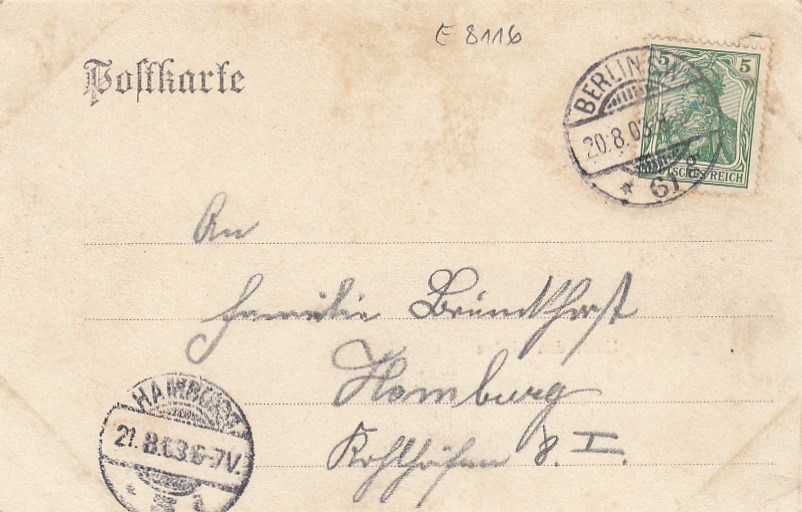 E 8116
Postkarte
BERLIN S.W.
20.8.03.
* 61
5 5
DEUTSCHES REICH
An
Familie Bründthorst
Hamburg
Kohlhöfen 8. I.
HAMBURG
21.8.03 6-7V.